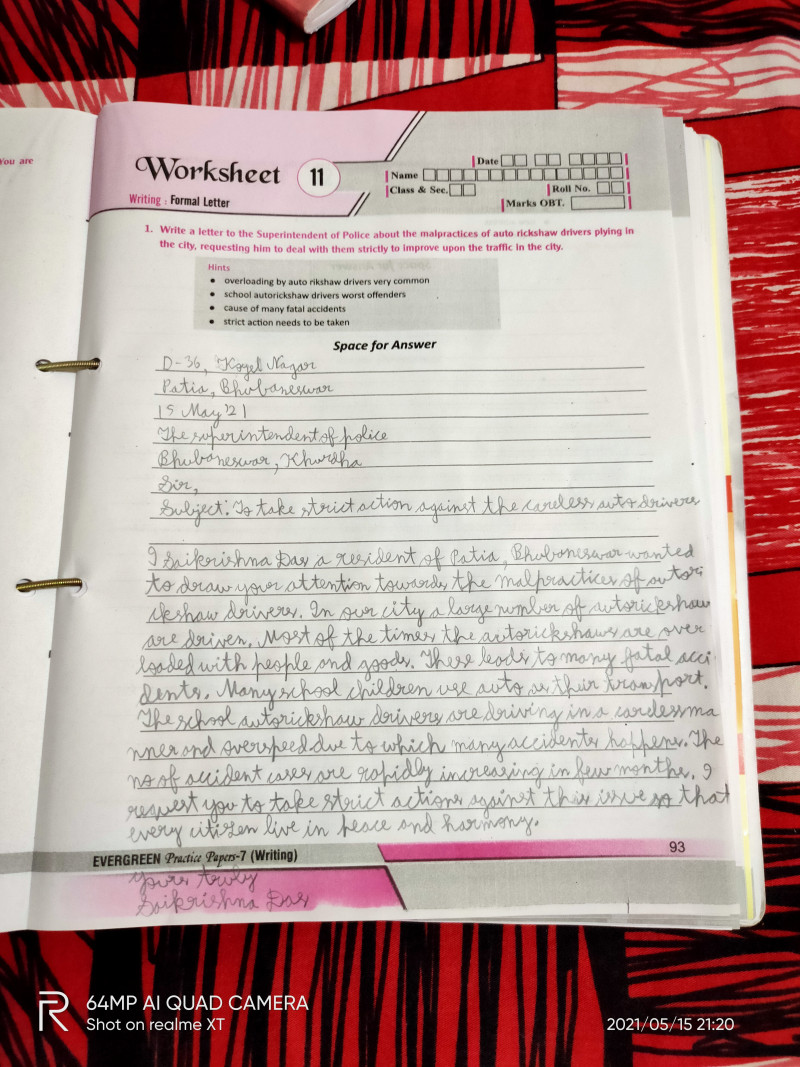 You are
Worksheet 11
Writing : Formal Letter
Date
Name
Class & Sec.
Roll No.
Marks OBT.
1. Write a letter to the Superintendent of Police about the malpractices of auto rickshaw drivers plying in
the city, requesting him to deal with them strictly to improve upon the traffic in the city.
Hints
• overloading by auto rikshaw drivers very common
• school autorickshaw drivers worst offenders
• cause of many fatal accidents
• strict action needs to be taken
Space for Answer
D-36, Koyel Nagar
Patia, Bhubaneswar
15 May'21
The superintendent of police
Bhubaneswar, Khurdha
Sir,
Subject: To take strict action against the careless auto drivers
I Saikrishna Das a resident of Patia, Bhubaneswar wanted
to draw your attention towards the malpractices of autori
ckshaw drivers. In our city a large number of autorickshaw
are driven. Most of the times the autorickshaws are over
loaded with people and goods. These leads to many fatal acci
dents. Many school children use auto as their transport.
The school autorickshaw drivers are driving in a careless ma
nner and overspeed due to which many accidents happens. The
no of accident cases are rapidly increasing in few months. I
request you to take strict actions against this issue so that
every citizen live in peace and harmony.
EVERGREEN Practice Papers-7 (Writing)
93
yours truly
Saikrishna Das
R
64MP AI QUAD CAMERA
Shot on realme XT
2021/05/15 21:20